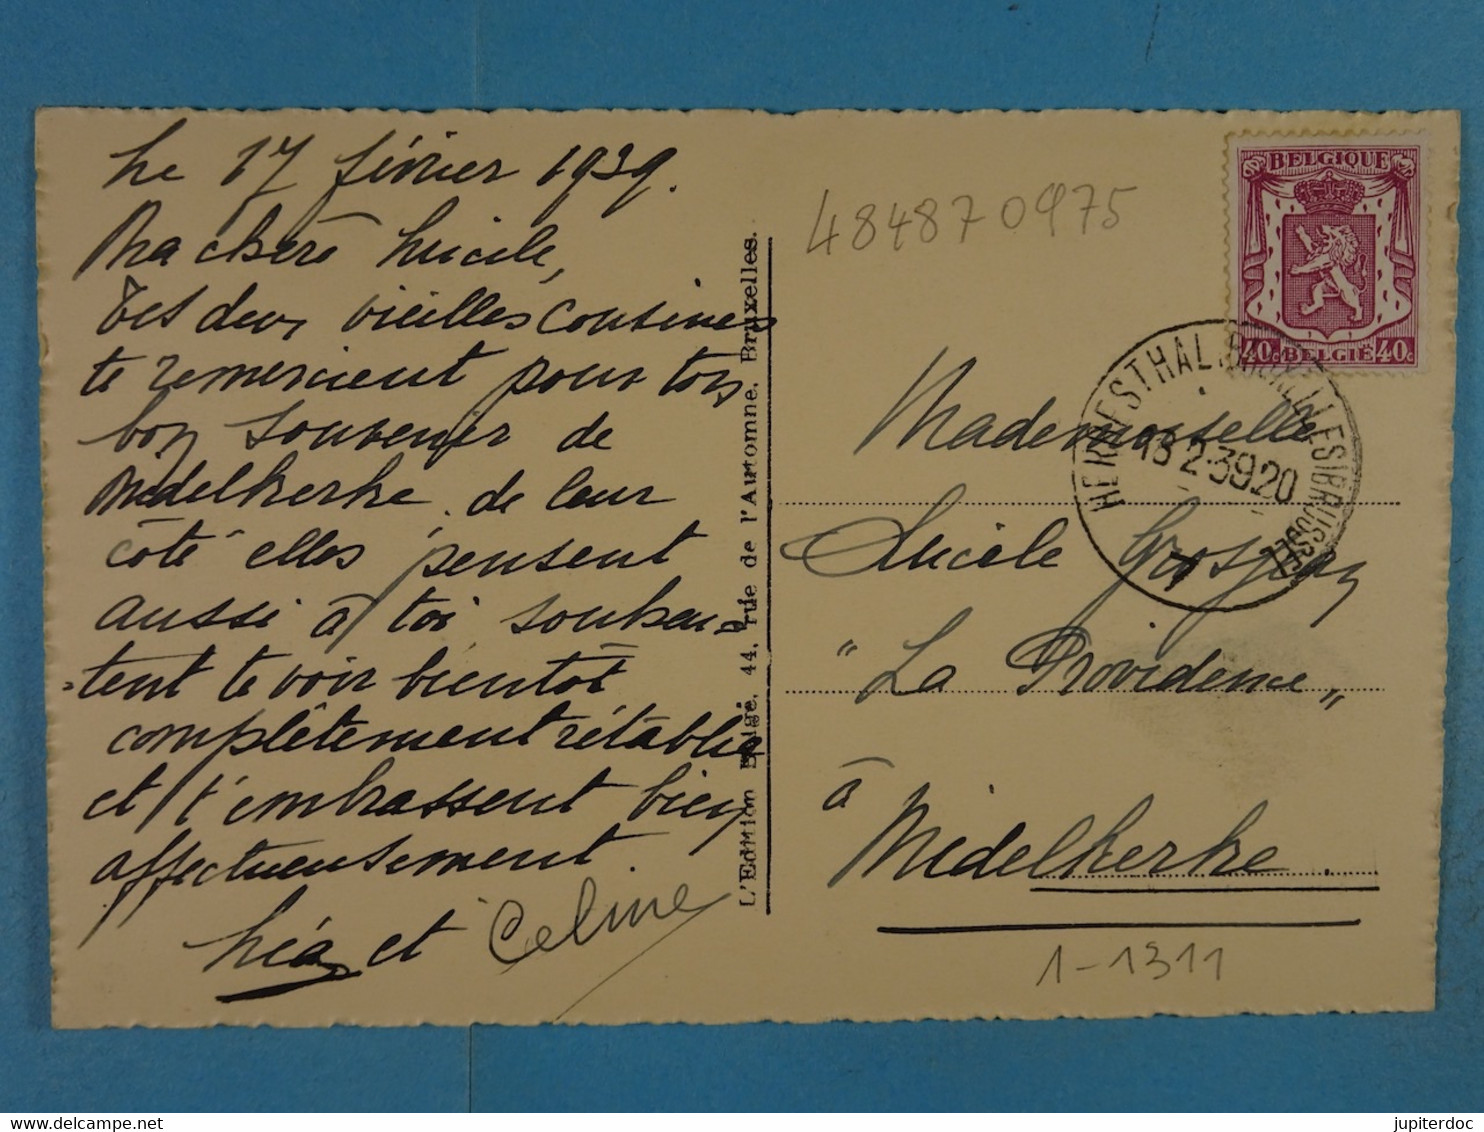 Le 17 février 1939.
Ma chère Lucile,
Tes deux vieilles cousines
te remercient pour ton
bon souvenir de
Middelkerke. de leur
côté elles pensent
aussi à toi souhai-
-tent te voir bientôt
complètement rétablie
et t'embrassent bien
affectueusement.
Léa et Celine
L'Edition Belge, 44, rue de l'Automne, Bruxelles.
484870975
BELGIQUE
40c BELGIË 40c
13 2-39 20
Mademoiselle
Lucile Grosjean
"La Providence"
à
Midelkerke.
1-1311
jupiterdoc